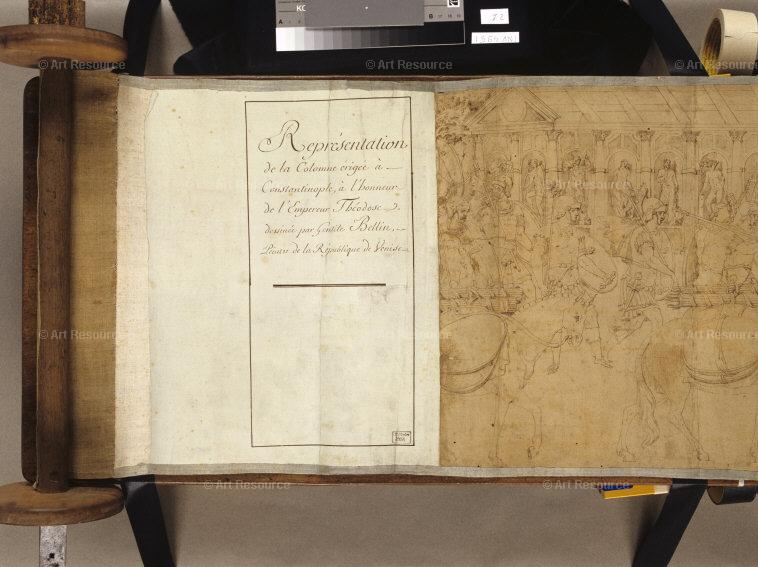 KO
A
B 17 18 19
I 2
1964 AN 1
© Art Resource © Art Resource © Art Resource
Représentation
de la Colomne érigée à
Constantinople, à l'honneur
de l'Empereur Théodose
dessinée par Gentile Bellin,
Peintre de la République de Venise
© Art Resource © Art Resource © Art Resource
© Art Resource © Art Resource